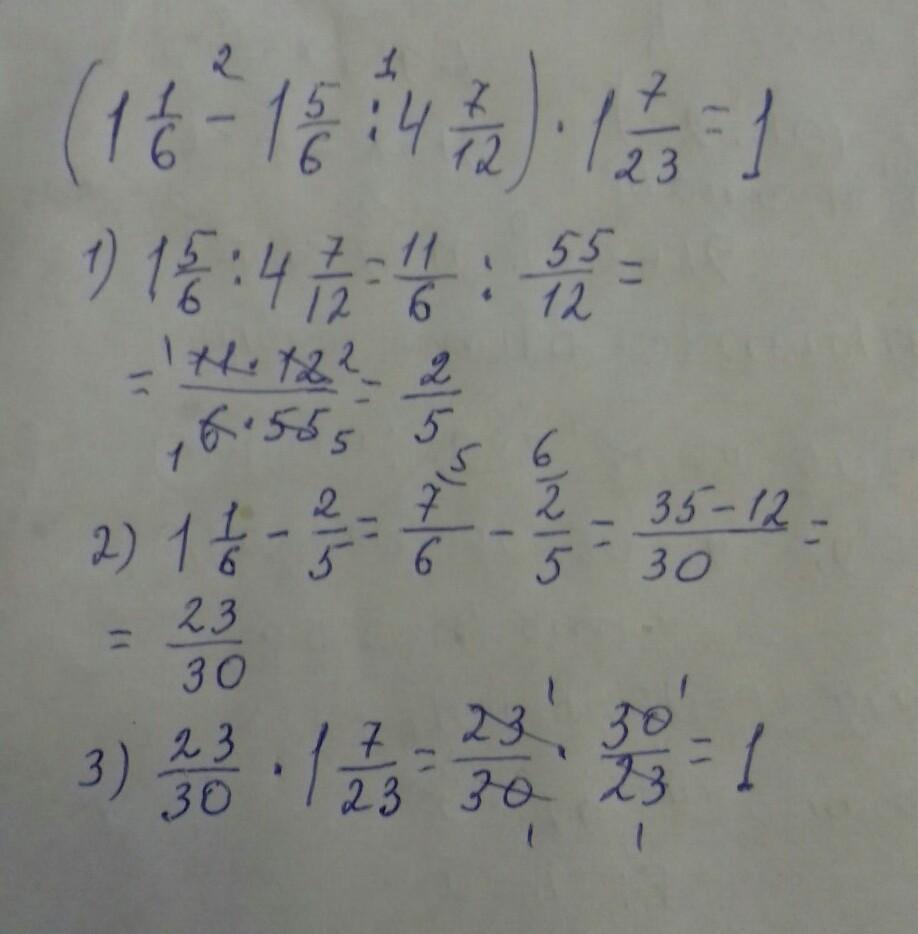 (1 1/6 - 1 5/6 : 4 7/12) · 1 7/23 = 1
1) 1 5/6 : 4 7/12 = 11/6 : 55/12 =
= 11·12/6·55 = 2/5
2) 1 1/6 - 2/5 = 7/6 - 2/5 = 35-12/30 =
= 23/30
3) 23/30 · 1 7/23 = 23/30 · 30/23 = 1